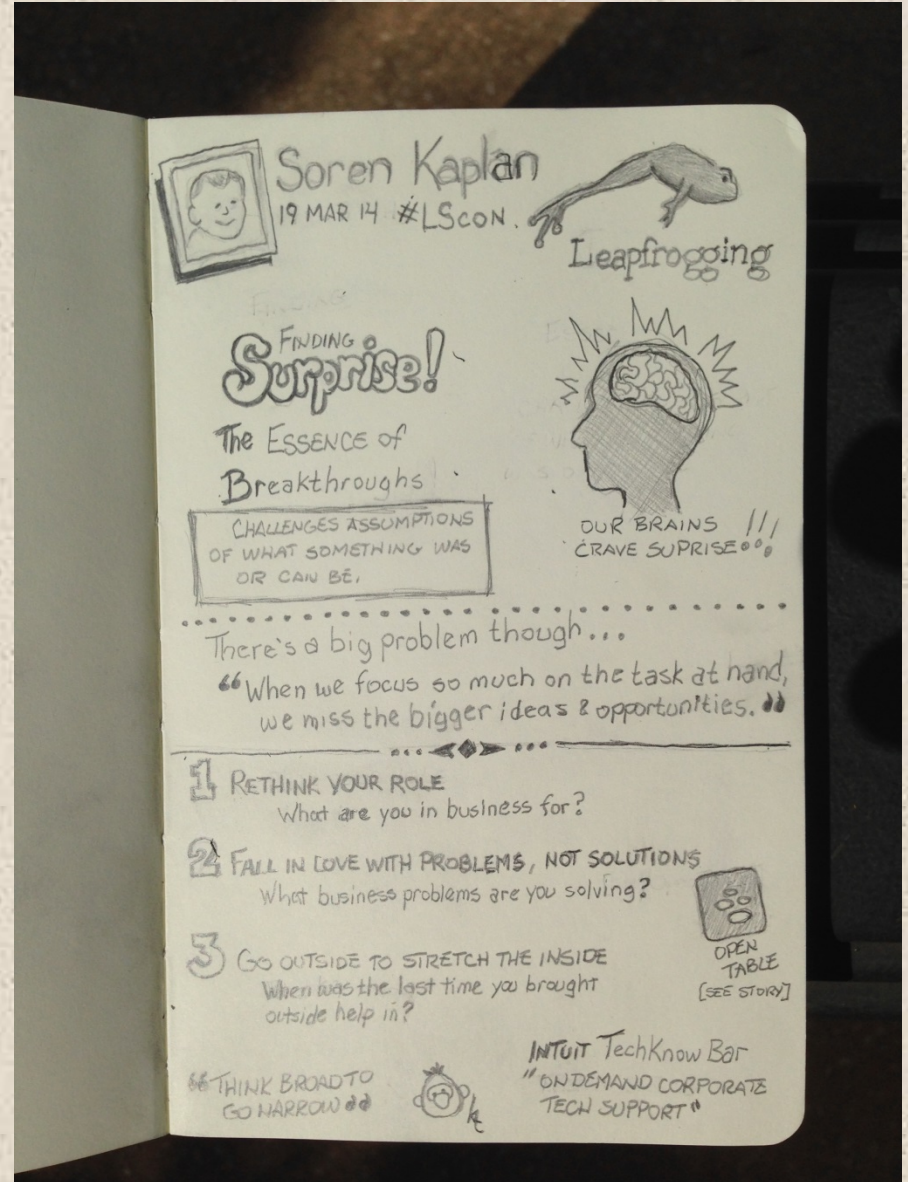 Soren Kaplan
19 MAR 14 #LSCON.
Leapfrogging
FINDING
Surprise!
The ESSENCE of
Breakthroughs
CHALLENGES ASSUMPTIONS
OF WHAT SOMETHING WAS
OR CAN BE.
OUR BRAINS
CRAVE SUPRISE!!!
There's a big problem though...
"When we focus so much on the task at hand,
we miss the bigger ideas & opportunities."
1 RETHINK YOUR ROLE
What are you in business for?
2 FALL IN LOVE WITH PROBLEMS, NOT SOLUTIONS
What business problems are you solving?
OPEN
TABLE
[SEE STORY]
3 GO OUTSIDE TO STRETCH THE INSIDE
When was the last time you brought
outside help in?
"THINK BROAD TO
GO NARROW"
INTUIT TechKnow Bar
"ON DEMAND CORPORATE
TECH SUPPORT"